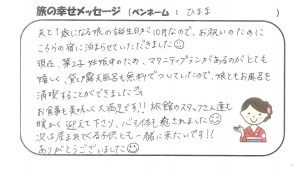 旅の幸せメッセージ (ペンネーム: ひまま )
夫と1歳になる娘の誕生日が10月なので、お祝いのために
こちらの宿に泊まらせていただきました
現在、第2子妊娠中のため、マタニティプランがあるのがとても
嬉しく、貸切露天風呂も無料でついていたので、娘ともお風呂を
満喫することができました
お食事も美味しく大満足です!! 旅館のスタッフさん達も
暖かく迎えて下さり、心も体も癒されました
次は産まれてくる子供とも一緒に来たいです!!
ありがとうございました